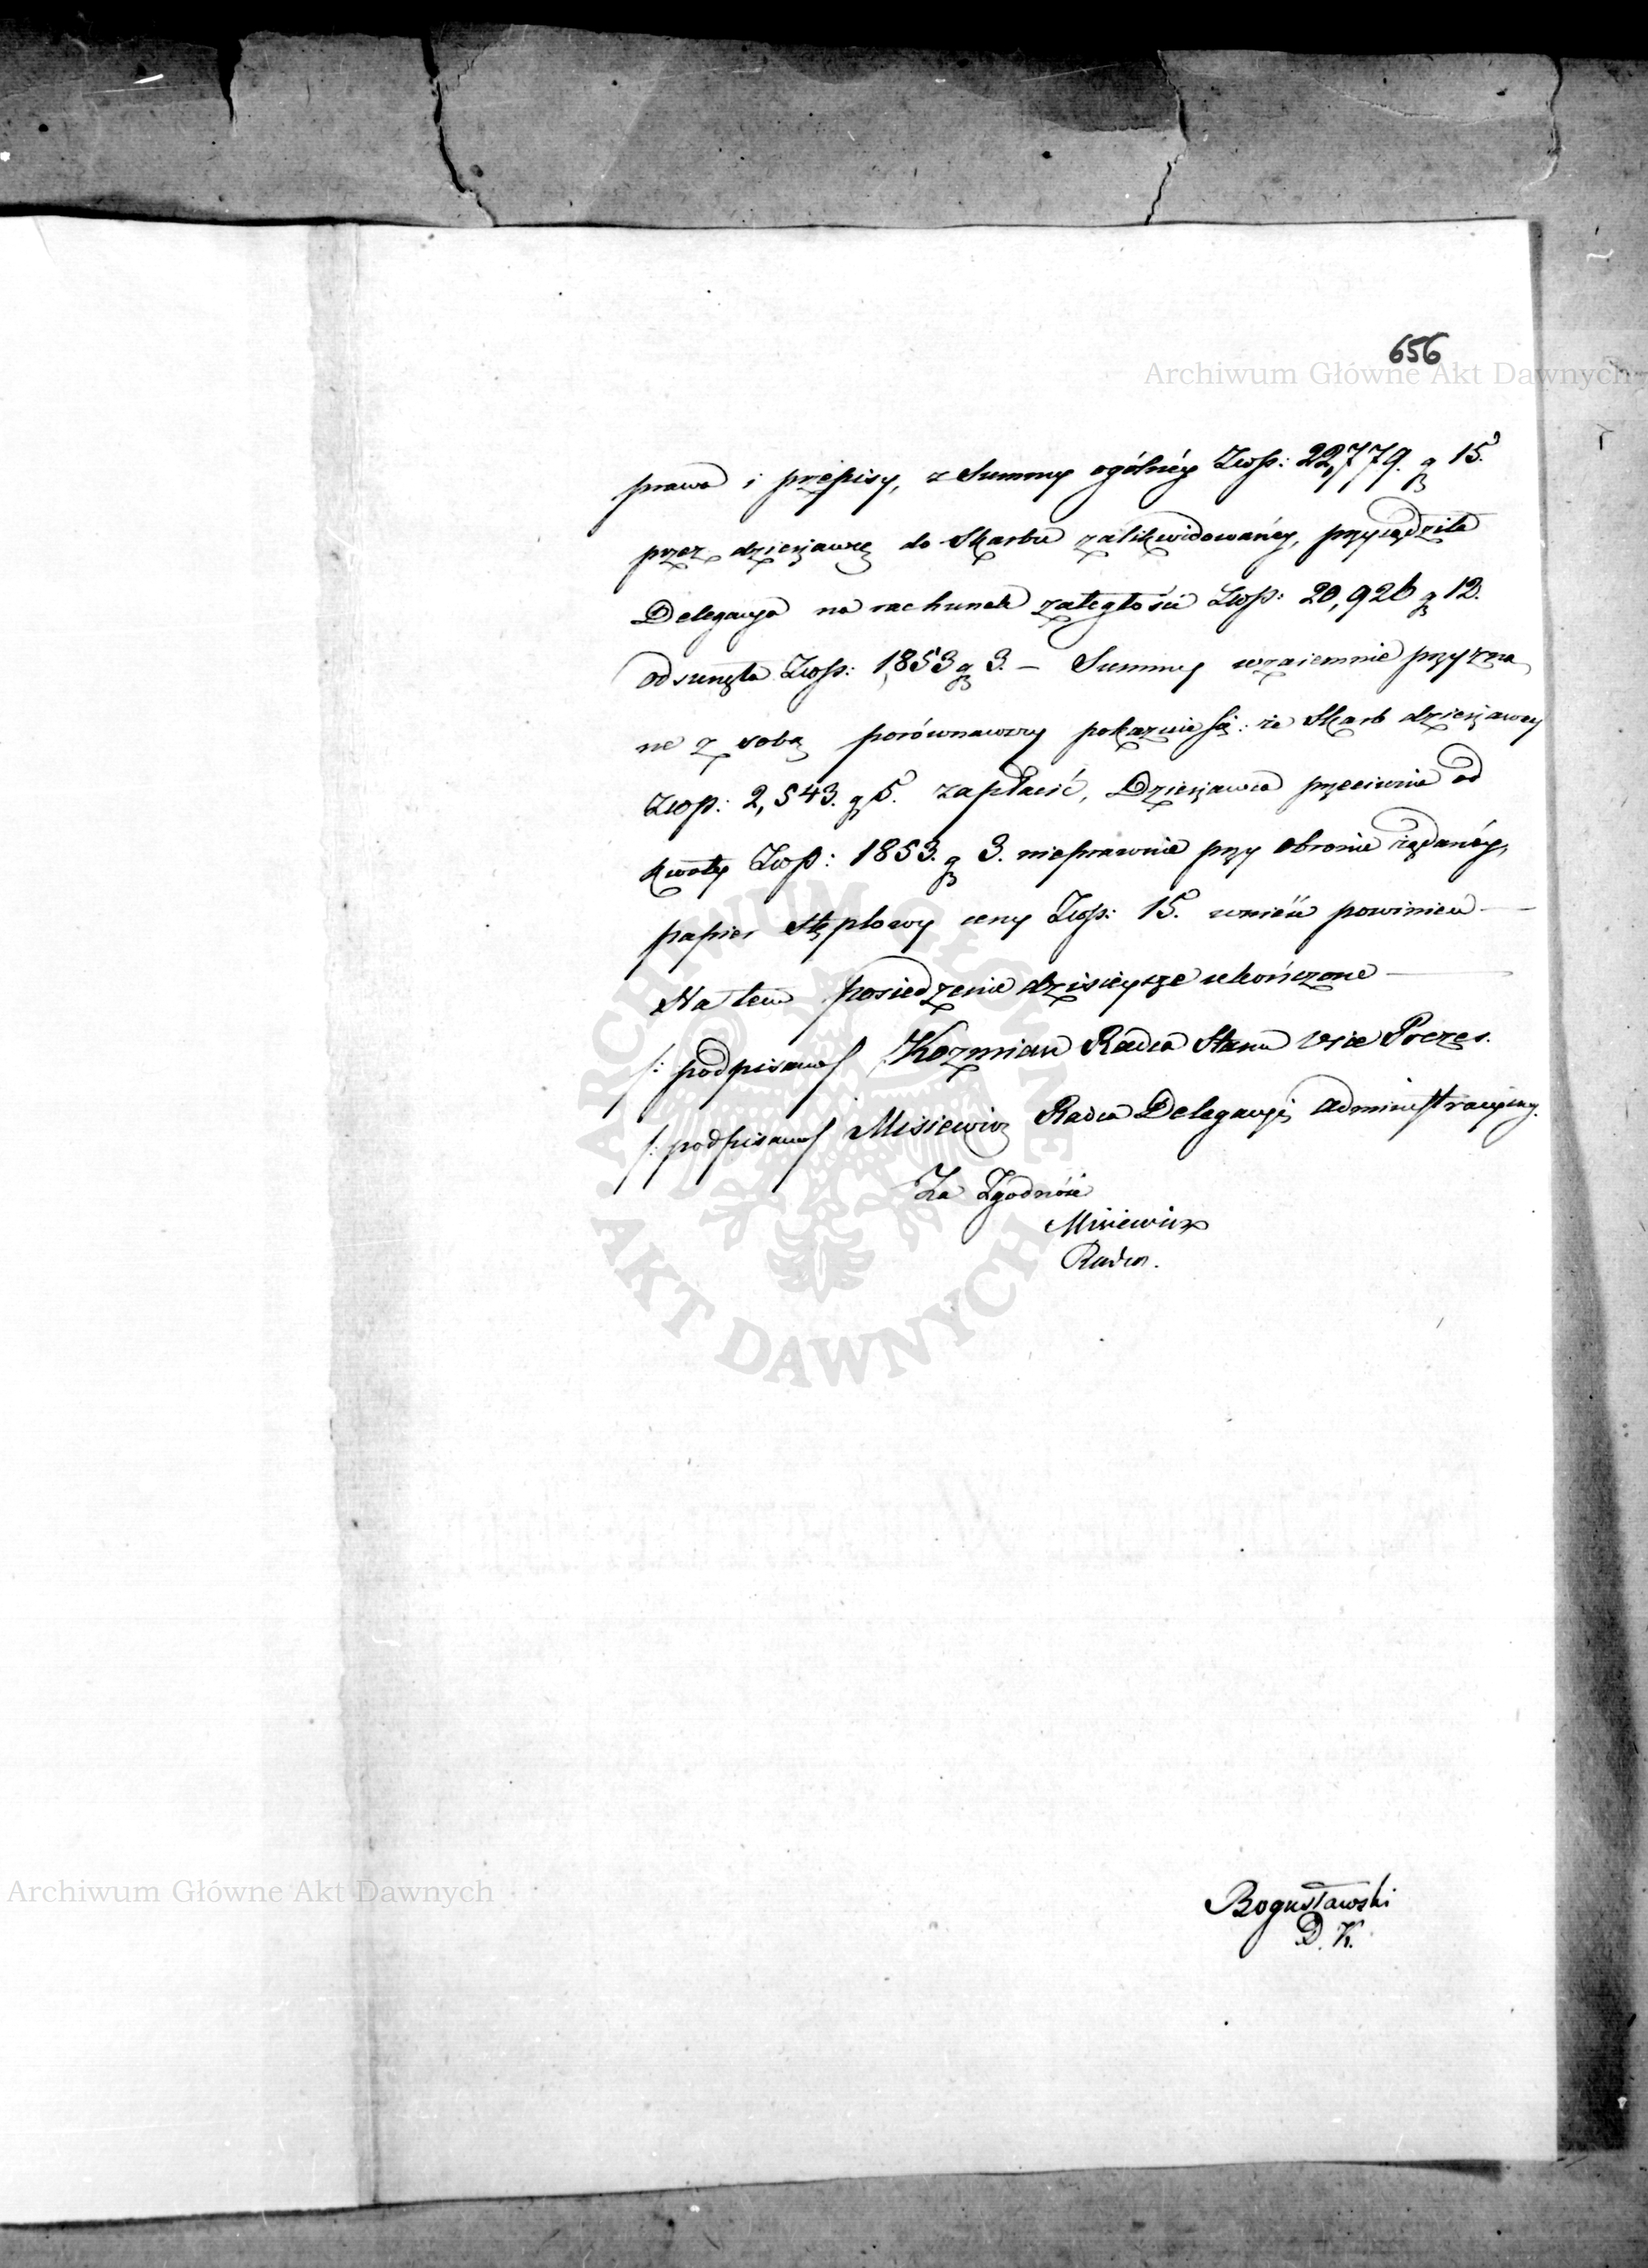 656
Archiwum Główne Akt Dawnych
prawa i przepisy, z Summy ogólnéy Złłp: 22,779. gr 15.
przez dzierżawcę do Skarbu zalikwidowanéy, przysądziła
Delegacya na rachunek zaległości Złłp: 20,926 gr 12.
odsunęła Złłp: 1,853 gr 3. – Summy wzaiemnie przyzna
ne z sobą porównawszy pokazuie się: że Skarb dzierżawcy
Złłp: 2,543. gr 5. zapłacić, Dzierżawca przeciwnie od
kwoty Złłp: 1853. gr 3. nieprawnie przy obronie żądanéy,
papier stęplowy ceny Złłp: 15. wnieść powinien —
Na tem posiedzenie dzisieysze ukończone —
/: podpisano/ Kozmian Radca Stanu Vice Prezes.
/: podpisano/ Misiewicz Radca Delegacyi Administracyiney.
Za Zgodność
Misiewicz
Radca.
ARCHIWUM GŁÓWNE AKT DAWNYCH
Archiwum Główne Akt Dawnych
Bogusławski
D. K.